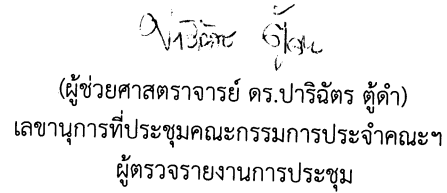 ปาริฉัตร ตู้ดำ
(ผู้ช่วยศาสตราจารย์ ดร.ปาริฉัตร ตู้ดำ)
เลขานุการที่ประชุมคณะกรรมการประจำคณะฯ
ผู้ตรวจรายงานการประชุม